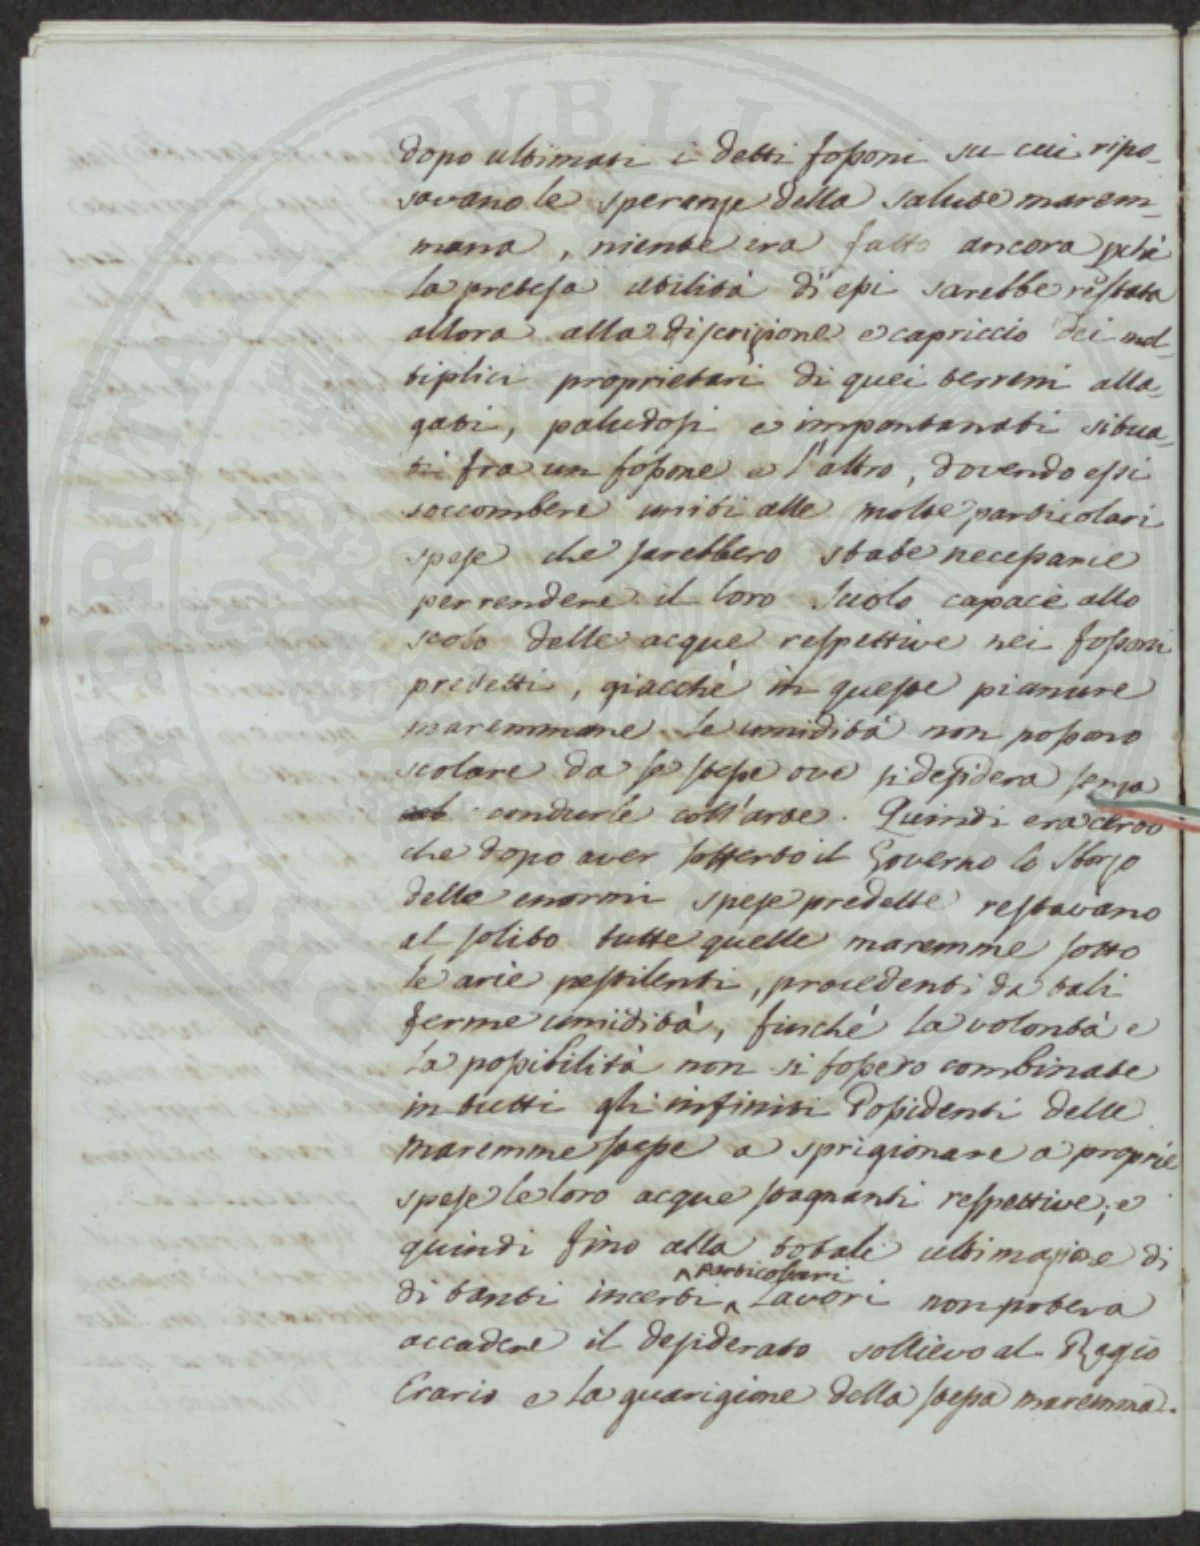 dopo ultimati i detti fossoni su cui ripo-
savano le speranze della salute marem-
mana, niente era fatto ancora pchè
la pretesa utilità di essi sarebbe restata
allora alla discrizione e capriccio dei mol-
tiplici proprietari di quei terreni alla-
gati, paludosi e impantanati situa-
ti fra un fossone e l'altro, dovendo essi
soccombere uniti alle molte particolari
spese che sarebbero state necessarie
per rendere il loro suolo capace allo
scolo delle acque respettive nei fossoni
predetti, giacchè in queste pianure
maremmane le umidità non possono
scolare da se stesse ove si desidera senza
condurle coll'arte. Quindi era certo
che dopo aver sofferto il Governo lo sborzo
delle enormi spese predette restavano
al solito tutte quelle maremme sotto
le arie pestilenti, procedenti da tali
ferme umidità, finchè la volontà e
la possibilità non si fossero combinate
in tutti gli infiniti Possidenti delle
maremme stesse a sprigionare a proprie
spese le loro acque stagnanti respettive; e
quindi fino alla totale ultimazione di
di tanti incerti particolari Lavori non poteva
accadere il desiderato sollievo al Regio
Erario e la guarigione della stessa maremma.
PROSPERITATI PUBLI